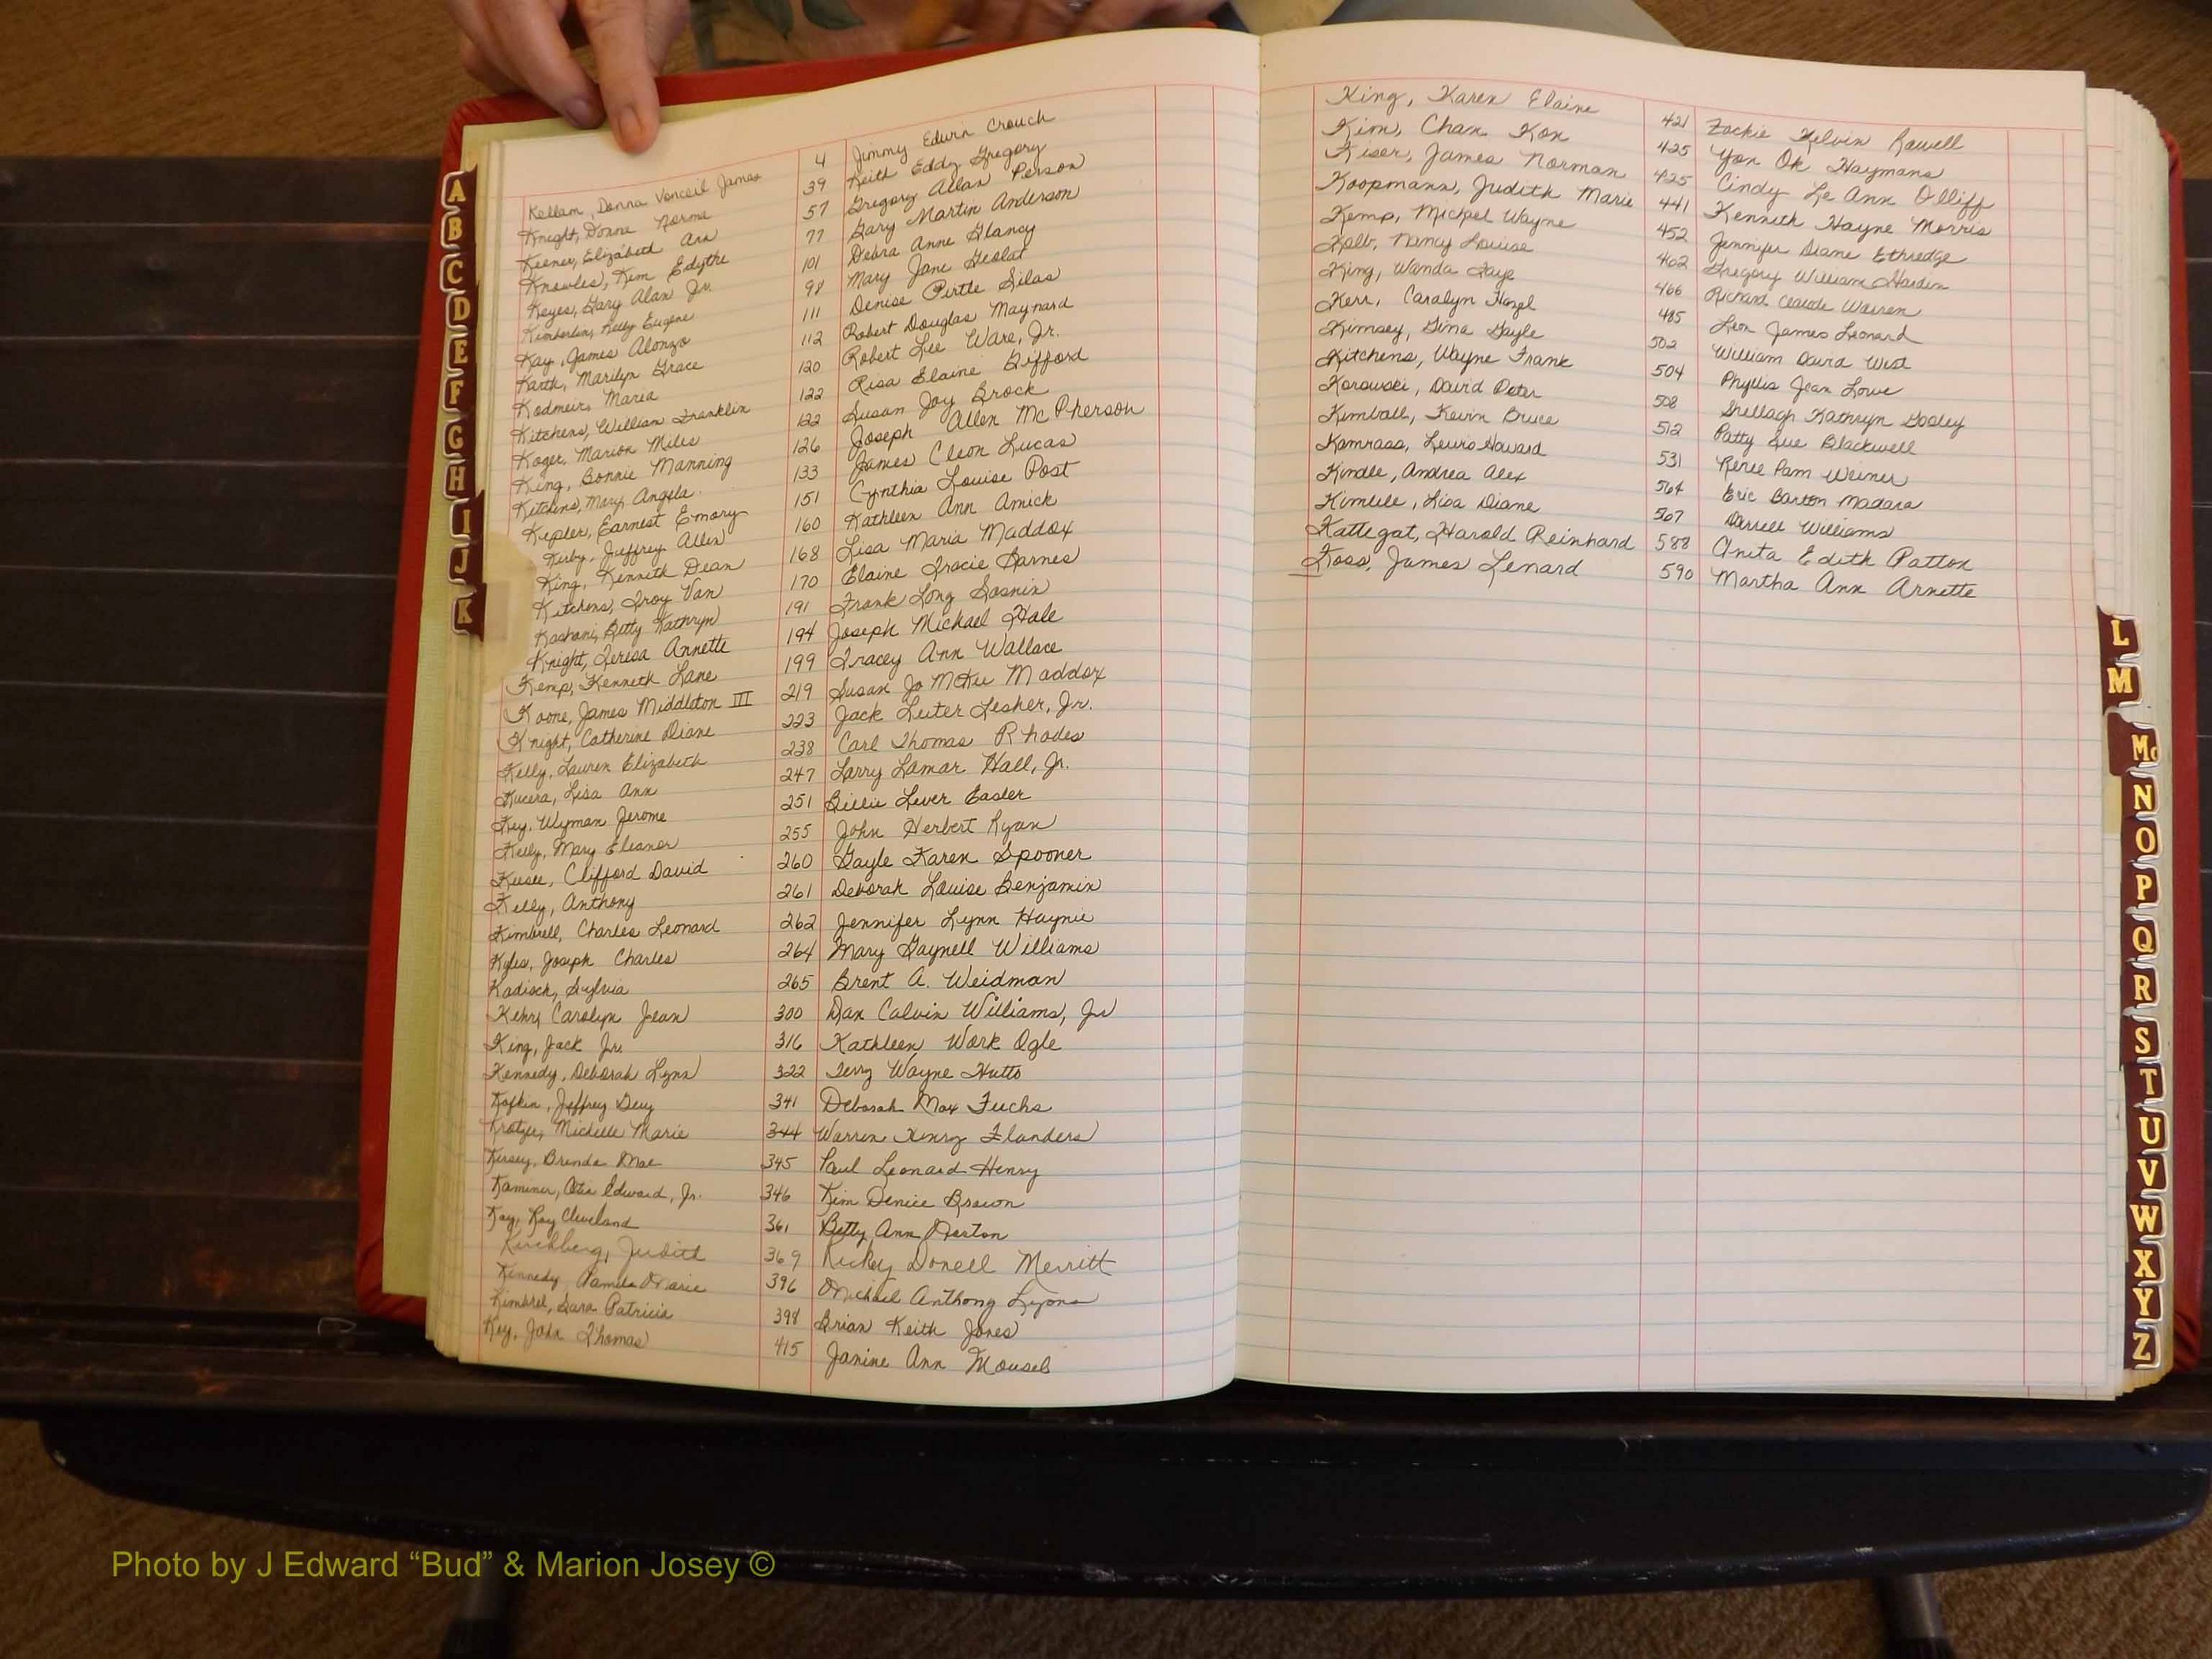 A
B
C
D
E
F
G
H
I
J
K
Kellam, Donna Vonceil James 4 Jimmy Edwin Crouch
Knight, Donna Norma 39 Keith Eddy Gregory
Keener, Elizabeth Ann 57 Gregory Allan Person
Knowles, Kim Edythe 77 Gary Martin Anderson
Keyes, Gary Alan Jr. 101 Debra Anne Glancy
Kimberlin, Kelly Eugene 98 Mary Jane Geolat
Kay, James Alonzo 111 Denise Pirtle Silas
Karth, Marilyn Grace 112 Robert Douglas Maynard
Kodmeir, Maria 120 Robert Lee Ware, Jr.
Kitchens, William Franklin 122 Risa Elaine Gifford
Koger, Marion Miles 122 Susan Joy Brock
King, Bonnie Manning 126 Joseph Allen McPherson
Kitchens, Mary Angela 133 James Cleon Lucas
Kepler, Earnest Emory 151 Cynthia Louise Post
Kirby, Jeffrey Allen 160 Kathleen Ann Amick
King, Kenneth Dean 168 Lisa Maria Maddox
Kitchens, Troy Van 170 Elaine Tracie Barnes
Kashani, Betty Kathryn 191 Frank Long Sosnin
Knight, Teresa Annette 194 Joseph Michael Hale
Kemp, Kenneth Lane 199 Tracey Ann Wallace
Koone, James Middleton III 219 Susan Jo McKee Maddox
Knight, Catherine Diane 223 Jack Luter Lesher, Jr.
Kelly, Lauren Elizabeth 238 Carl Thomas Rhodes
Kucera, Lisa Ann 247 Larry Lamar Hall, Jr.
Key, Wyman Jerome 251 Billie Lever Easler
Kelly, Mary Eleanor 255 John Herbert Ryan
Kusee, Clifford David 260 Gayle Karen Spooner
Kelly, Anthony 261 Deborah Louise Benjamin
Kimbrell, Charles Leonard 262 Jennifer Lynn Haynie
Kyles, Joseph Charles 264 Mary Gaynell Williams
Kadisch, Sylvia 265 Brent A. Weidman
Kehr, Carolyn Jean 300 Dan Calvin Williams, Jr
King, Jack Jr. 316 Kathleen Work Ogle
Kennedy, Deborah Lynn 322 Terry Wayne Hutto
Kofkin, Jeffrey Guy 341 Deborah May Fuchs
Krotzer, Michelle Marie 344 Warren Henry Flanders
Kersey, Brenda Mae 345 Paul Leonard Henry
Kaminer, Otis Edward, Jr. 346 Kim Denice Brown
Kay, Roy Cleveland 361 Betty Ann Norton
Kirchberg, Judith 369 Rickey Donell Merritt
Kennedy Pamela Marie 396 Michael Anthony Lyons
Kimbrel, Sara Patricia 398 Brian Keith Jones
Key, John Thomas 415 Janine Ann Mousel
King, Karen Elaine 421 Zackie Kelvin Rowell
Kim, Chan Kon 425 Yon Ok Haymans
Kiser, James Norman 425 Cindy Le Ann Olliff
Koopmann, Judith Marie 441 Kenneth Hayne Morris
Kemp, Michael Wayne 452 Jennifer Diane Ethredge
Kolb, Nancy Louise 462 Gregory William Hardin
King, Wanda Faye 466 Richard Claude Warren
Kerr, Caralyn Hazel 485 Leon James Leonard
Kimsey, Gina Gayle 502 William David West
Kitchens, Wayne Frank 504 Phyllis Jean Lowe
Korowski, David Peter 508 Shellagh Kathryn Gosley
Kimball, Kevin Bruce 512 Patty Sue Blackwell
Kamrass, Lewis Howard 531 Renee Pam Weiner
Kindle, Andrea Alex 564 Eric Barton Madara
Kimlele, Lisa Diane 567 Darrell Williams
Kattegat, Harold Reinhard 588 Anita Edith Patton
Koss, James Lenard 590 Martha Ann Arnette
L
M
Mc
N
O
P
Q
R
S
T
U
V
W
X
Y
Z
Photo by J Edward “Bud” & Marion Josey ©